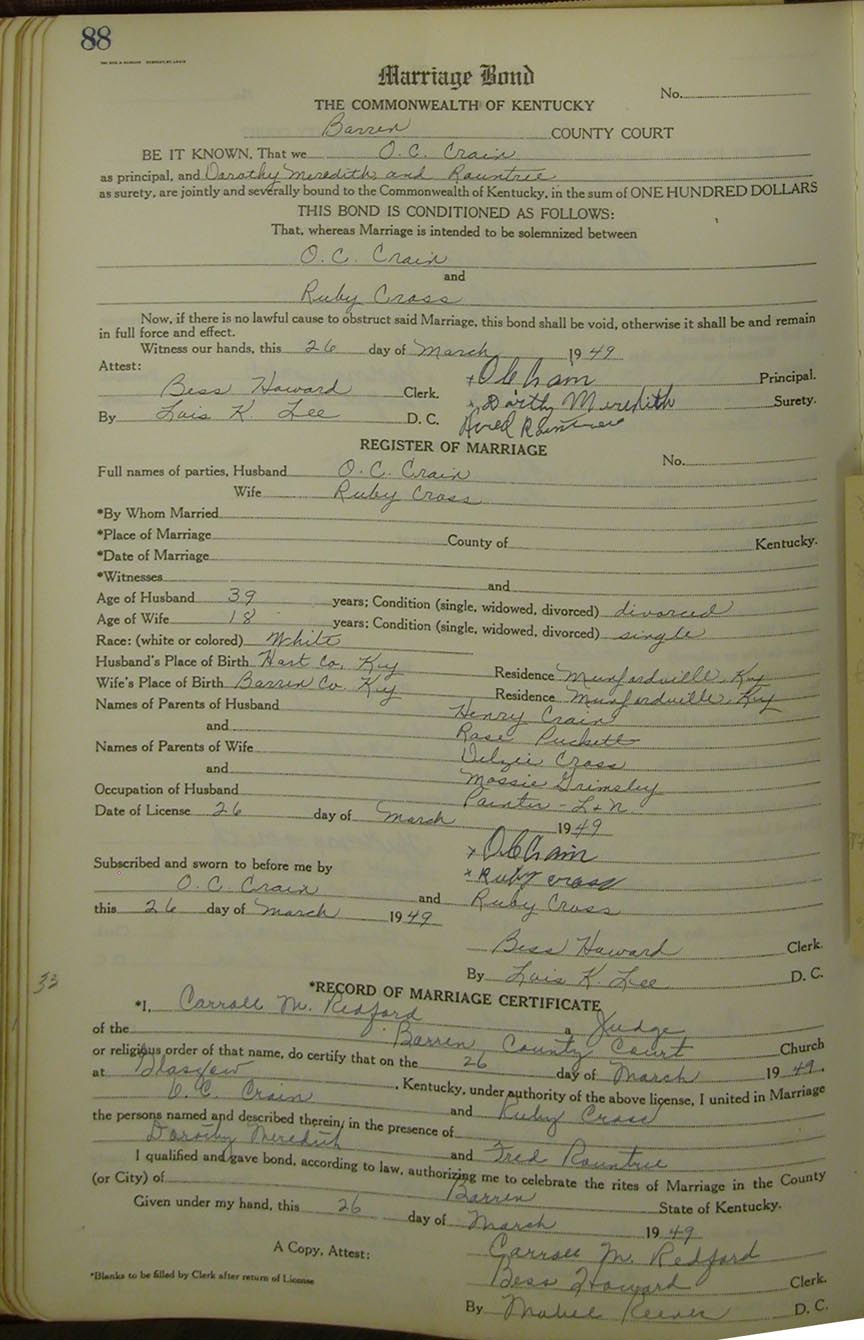 88
Marriage Bond
No.
THE COMMONWEALTH OF KENTUCKY
Barren COUNTY COURT
BE IT KNOWN, That we O. C. Crain
as principal, and Dorothy Meredith and Rountree
as surety, are jointly and severally bound to the Commonwealth of Kentucky, in the sum of ONE HUNDRED DOLLARS
THIS BOND IS CONDITIONED AS FOLLOWS:
That, whereas Marriage is intended to be solemnized between
O. C. Crain
and
Ruby Cross
Now, if there is no lawful cause to obstruct said Marriage, this bond shall be void, otherwise it shall be and remain
in full force and effect.
Witness our hands, this 26 day of March 1949
Attest: x O C Crain Principal.
Bess Howard Clerk. x Dorithy Meredith Surety.
By Lois K. Lee D. C. Rountree
REGISTER OF MARRIAGE
No.
Full names of parties, Husband O. C. Crain
Wife Ruby Cross
*By Whom Married
*Place of Marriage County of Kentucky.
*Date of Marriage
*Witnesses and
Age of Husband 39 years; Condition (single, widowed, divorced) divorced
Age of Wife 18 years; Condition (single, widowed, divorced) single
Race: (white or colored) White
Husband's Place of Birth Hart Co. Ky Residence Munfordville, Ky
Wife's Place of Birth Barren Co. Ky Residence Munfordville, Ky
Names of Parents of Husband Henry Crain
and Rose Puckett
Names of Parents of Wife Delzie Cross
and Mossie Grimsley
Occupation of Husband Painter - L & N
Date of License 26 day of March 1949
x O C Crain
Subscribed and sworn to before me by x Ruby Cross
O. C. Crain and Ruby Cross
this 26 day of March 1949
Bess Howard Clerk.
By Lois K. Lee D. C.
33
*RECORD OF MARRIAGE CERTIFICATE
*I, Carroll M. Redford a Judge
of the Barren County Court Church
or religious order of that name, do certify that on the 26 day of March 1949,
at Glasgow, Kentucky, under authority of the above license, I united in Marriage
O. C. Crain and Ruby Cross
the persons named and described therein, in the presence of
Dorothy Meredith and Fred Rountree
I qualified and gave bond, according to law, authorizing me to celebrate the rites of Marriage in the County
(or City) of Barren State of Kentucky.
Given under my hand, this 26 day of March 1949
Carroll M. Redford
A Copy, Attest: Bess Howard Clerk.
*Blanks to be filled by Clerk after return of License
By Mabel Reeves D. C.